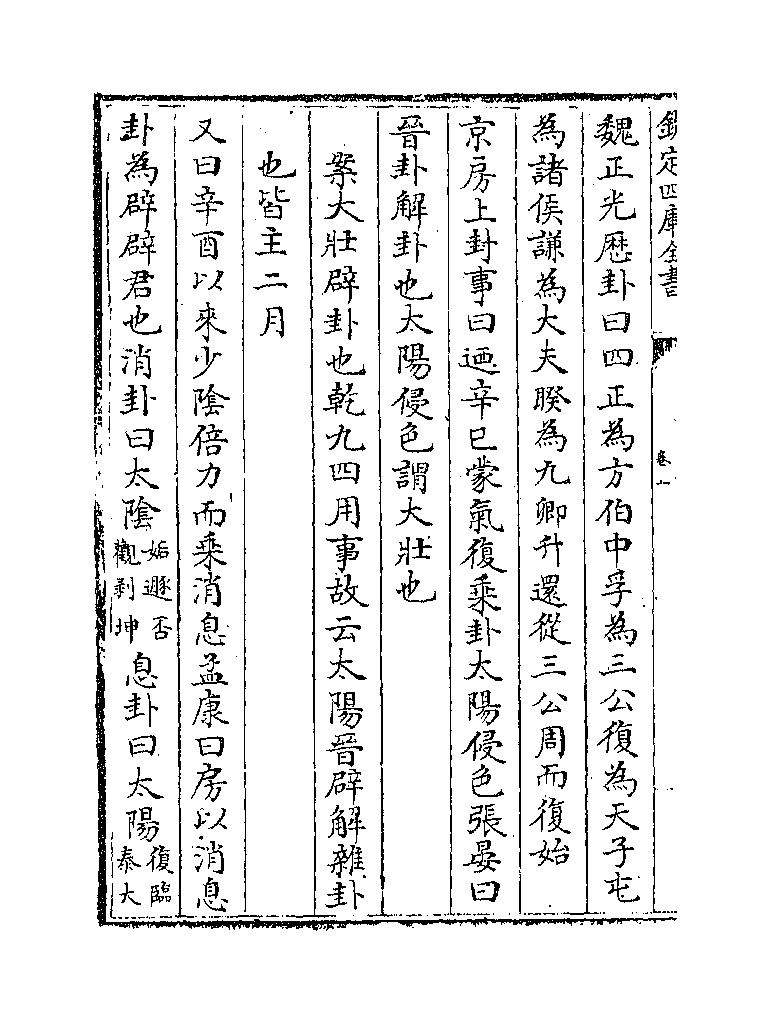 欽定四庫全書
卷一
魏正光歴卦曰四正為方伯中孚為三公復為天子屯
為諸侯謙為大夫睽為九卿升還從三公周而復始
京房上封事曰迺辛巳蒙氣復乗卦太陽侵色張晏曰
晉卦解卦也太陽侵色謂大壯也
案大壯辟卦也乾九四用事故云太陽晉辟解雜卦
也皆主二月
又曰辛酉以來少隂倍力而乗消息孟康曰房以消息
卦為辟辟君也消卦曰太隂姤遯否觀剥坤息卦曰太陽復臨泰大